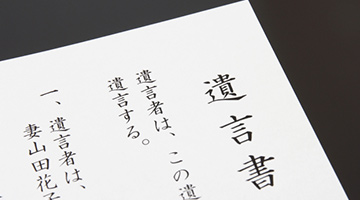 遺言書
遺言者は、この遺
遺言する。
一、遺言者は、
妻山田花子